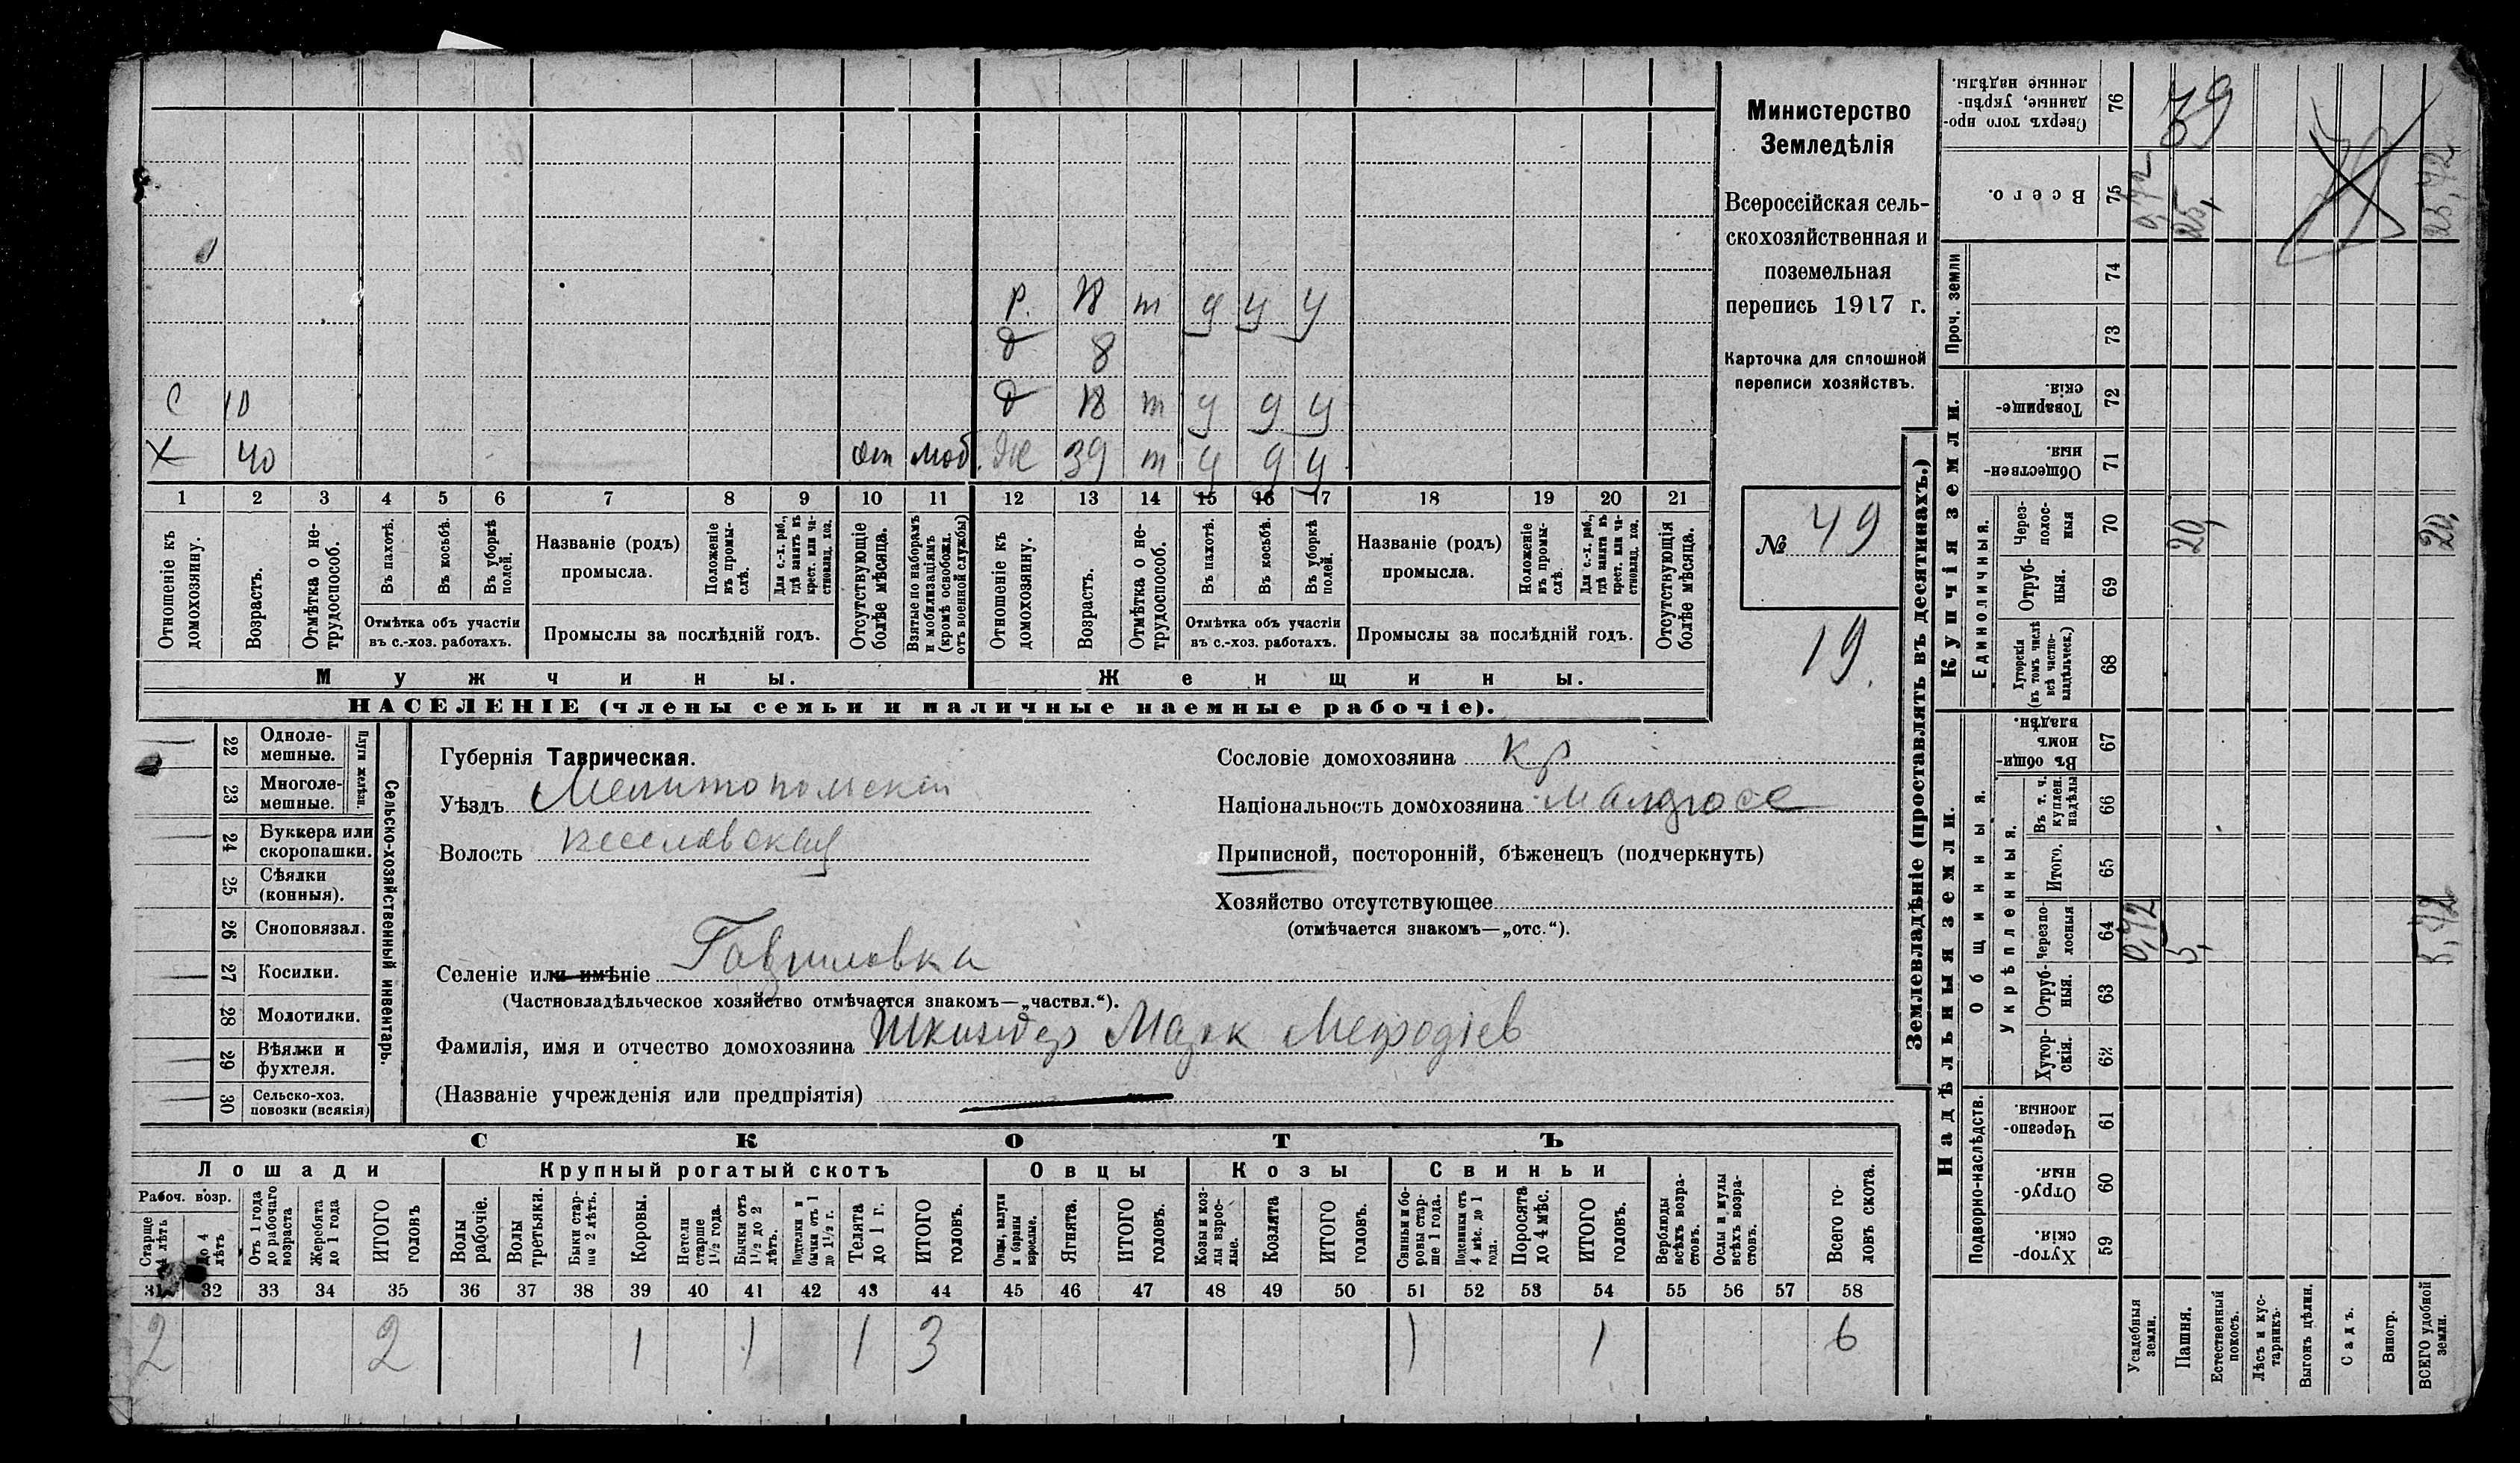 Министерство
Земледѣлія
Всероссійская сель-
скохозяйственная и
поземельная
перепись 1917 г.
Карточка для сплошной
переписи хозяйствъ.
№ 49
19.
р. 18 т у у у
д 8
С 10 д 18 т у у у
Х 40 от моб. Ж 39 т у у у
1 2 3 4 5 6 7 8 9 10 11 12 13 14 15 16 17 18 19 20 21
Отношеніе къ домохозяину.
Возрастъ.
Отмѣтка о не-трудоспособ.
Въ пахотѣ.
Въ косьбѣ.
Въ уборкѣ полей.
Отмѣтка объ участіи
въ с.-хоз. работахъ.
Названіе (родъ)
промысла.
Положеніе въ промы-слѣ.
Для с.-х. раб., гдѣ занятъ въ крест. или ча-стновлад. хоз.
Промыслы за послѣдній годъ.
Отсутствующіе болѣе мѣсяца.
Взятые по наборамъ и мобилизаціямъ (кромѣ освобожд. отъ военной службы)
Отношеніе къ домохозяину.
Возрастъ.
Отмѣтка о не-трудоспособ.
Въ пахотѣ.
Въ косьбѣ.
Въ уборкѣ полей.
Отмѣтка объ участіи
въ с.-хоз. работахъ.
Названіе (родъ)
промысла.
Положеніе въ промы-слѣ.
Для с.-х. раб., гдѣ занята въ крест. или ча-стновлад. хоз.
Промыслы за послѣдній годъ.
Отсутствующія болѣе мѣсяца.
Мужчины. Женщины.
НАСЕЛЕНІЕ (члены семьи и наличные наемные рабочіе).
22 Одноле-мешные.
23 Многоле-мешные.
Плуги желѣзн.
24 Буккера или скоропашки.
25 Сѣялки (конныя).
26 Сноповязал.
27 Косилки.
28 Молотилки.
29 Вѣялки и фухтеля.
30 Сельско-хоз. повозки (всякія)
Сельско-хозяйственный инвентарь.
Губернія Таврическая.
Уѣздъ Мелитопольскій
Волость Веселовская
Селеніе или имѣніе Гавриловка
(Частновладѣльческое хозяйство отмѣчается знакомъ—„частвл.“).
Фамилія, имя и отчество домохозяина Марк Мефодіев
(Названіе учрежденія или предпріятія)
Сословіе домохозяина кр
Національность домохозяина малорос
Приписной, посторонній, бѣженецъ (подчеркнуть)
Хозяйство отсутствующее
(отмѣчается знакомъ—„отс.“).
СКОТЪ
Лошади Крупный рогатый скотъ Овцы Козы Свиньи
Рабоч. возр.
Старше 4 лѣтъ
до 4 лѣтъ
Отъ 1 года до рабочаго возраста
Жеребята до 1 года
ИТОГО головъ
Волы рабочіе.
Волы третьяки.
Быки стар-ше 2 лѣтъ.
Коровы.
Нетели старше 1½ года.
Бычки отъ 1½ до 2 лѣтъ.
Подтелки и бычки отъ 1 до 1½ г.
Телята до 1 г.
ИТОГО головъ.
Овцы, валухи и бараны взрослые.
Ягнята.
ИТОГО головъ.
Козы и коз-лы взрос-лые.
Козлята
ИТОГО головъ.
Свиньи и бо-ровы стар-ше 1 года.
Подсвинки отъ 4 мѣс. до 1 года.
Поросята до 4 мѣс.
ИТОГО головъ.
Верблюды всѣхъ возра-стовъ.
Ослы и мулы всѣхъ возра-стовъ.
Всего го-ловъ скота.
31 32 33 34 35 36 37 38 39 40 41 42 43 44 45 46 47 48 49 50 51 52 53 54 55 56 57 58
2 2 1 1 1 3 1 1 6
Землевладѣніе (проставлять въ десятинахъ.)
Надѣльныя земли. Купчія земли. Проч. земли
Подворно-наслѣдств. Общинныя. Укрѣпленныя. Единоличныя.
59 Хутор-скія.
60 Отруб-ныя.
61 Черезпо-лосныя.
62 Хутор-скія.
63 Отруб-ныя.
64 Черезпо-лосныя 0,72 5, 5,72
65 Итого.
66 Въ т. ч. куплен. надѣлы
67 Въ общи-номъ владѣн.
68 Хуторскія (въ томъ числѣ всѣ частно-владѣльческ.)
69 Отруб-ныя.
70 Через-полос-ныя 20, 20,
71 Обществен-ныя.
72 Товарище-скія.
73
74
75 Всего. 0,72 25, 25,72
76 Сверхъ того про-данные, укрѣп-ленные надѣлы. 39
Усадебныя земли.
Пашня.
Естественный покосъ.
Лѣсъ и кус-тарникъ.
Выгонъ цѣлин.
Садъ.
Виногр.
ВСЕГО удобной земли.